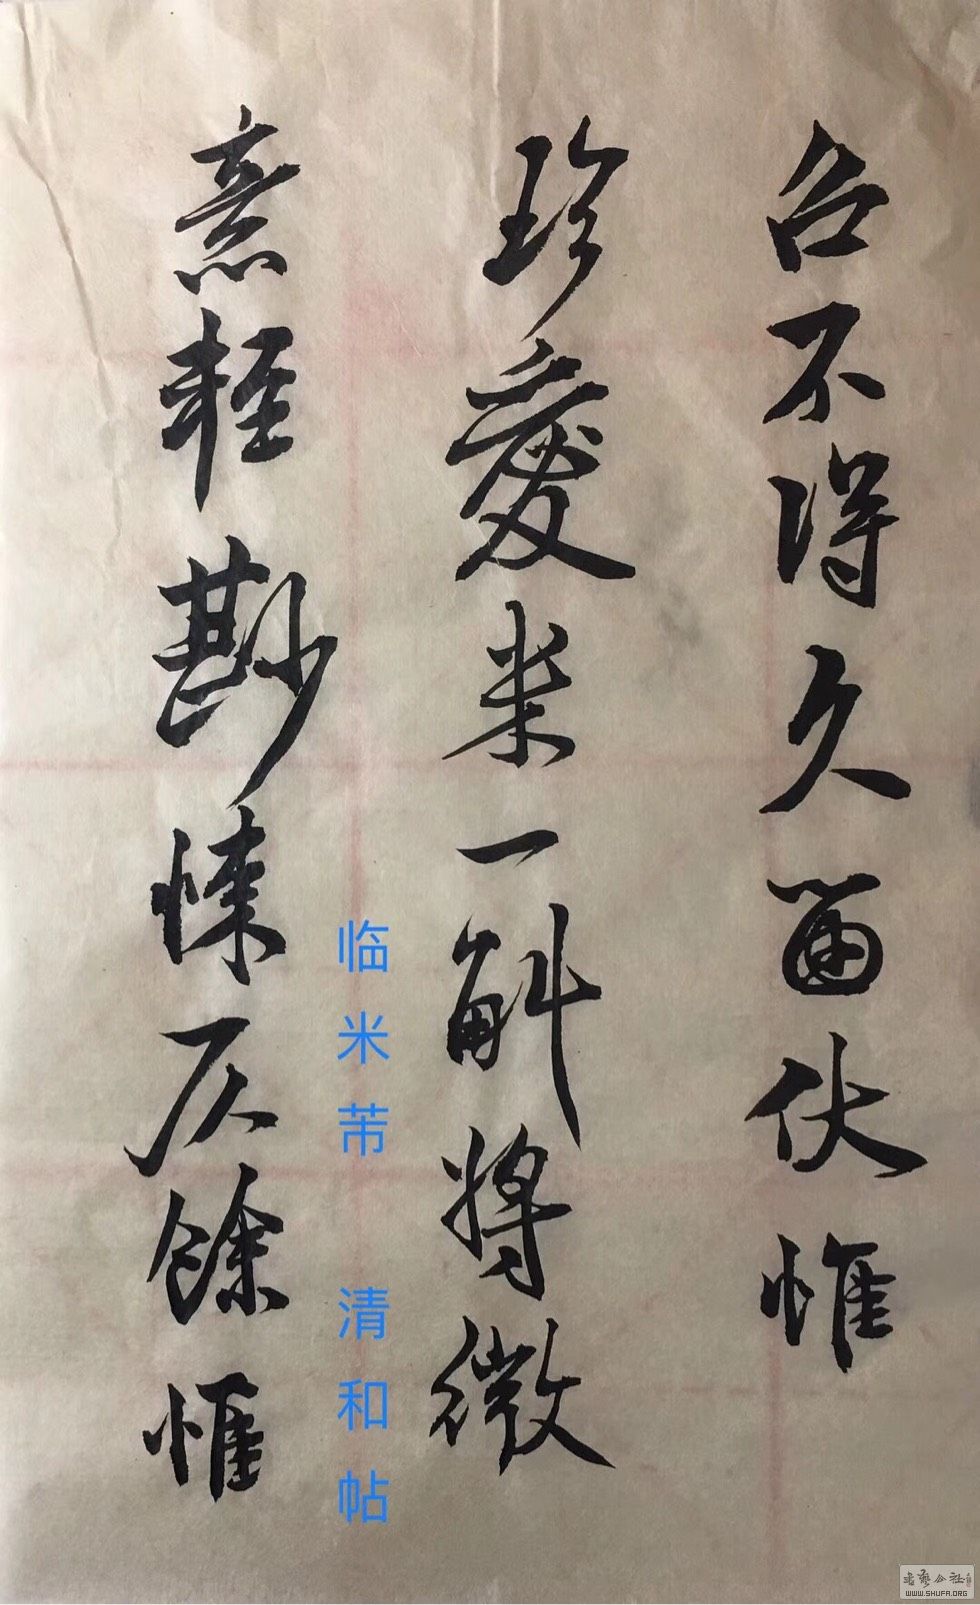 召不得久留伏惟
珍爱米一斛将微
意轻尠悚仄馀惟
临米芾 清和帖
書法公社
WWW.SHUFA.ORG